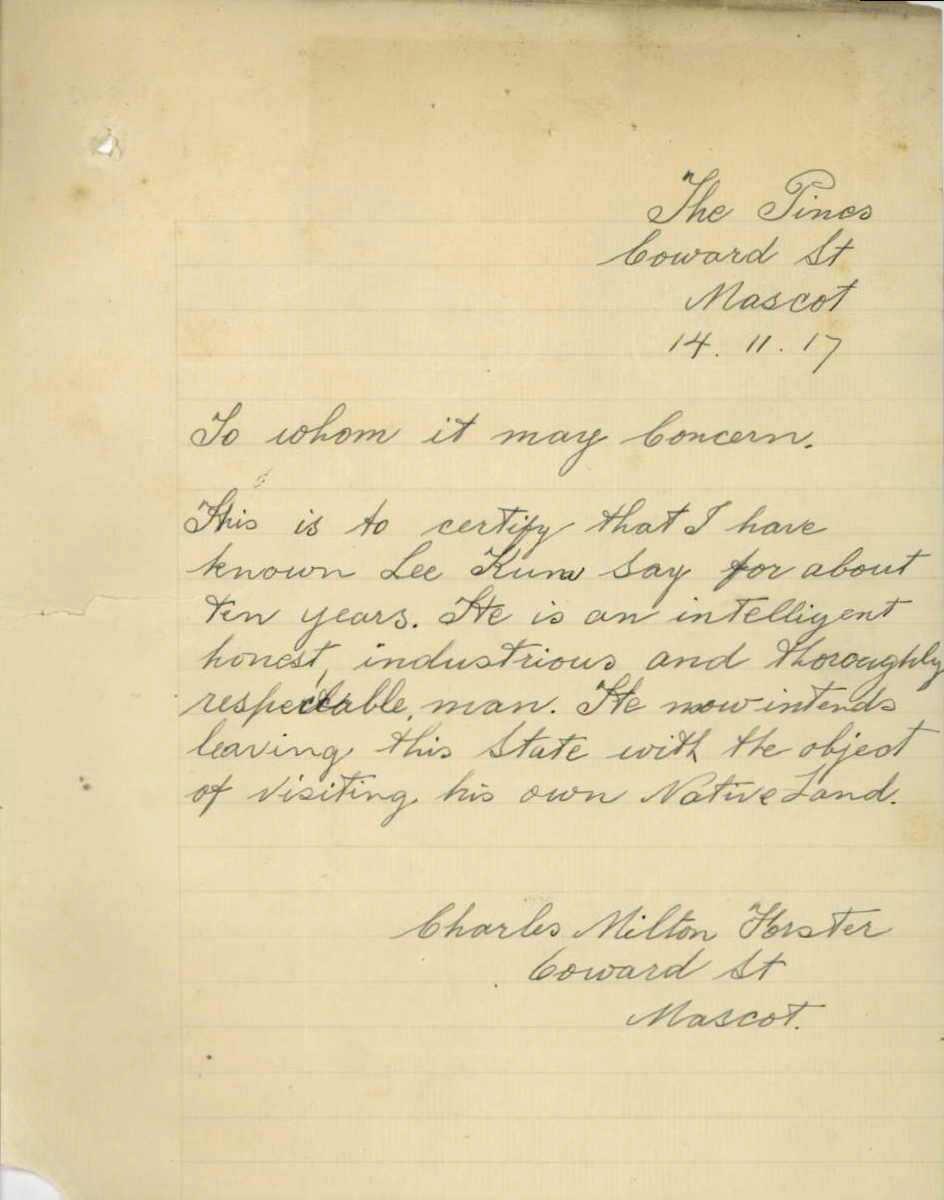 The Pines
Coward St
Mascot
14. 11. 17
To whom it may Concern.
This is to certify that I have
known Lee Kum Say for about
ten years. He is an intelligent
honest, industrious and thoroughly
respectable, man. He now intends
leaving this State with the object
of visiting his own Native Land.
Charles Milton Forster
Coward St
Mascot.